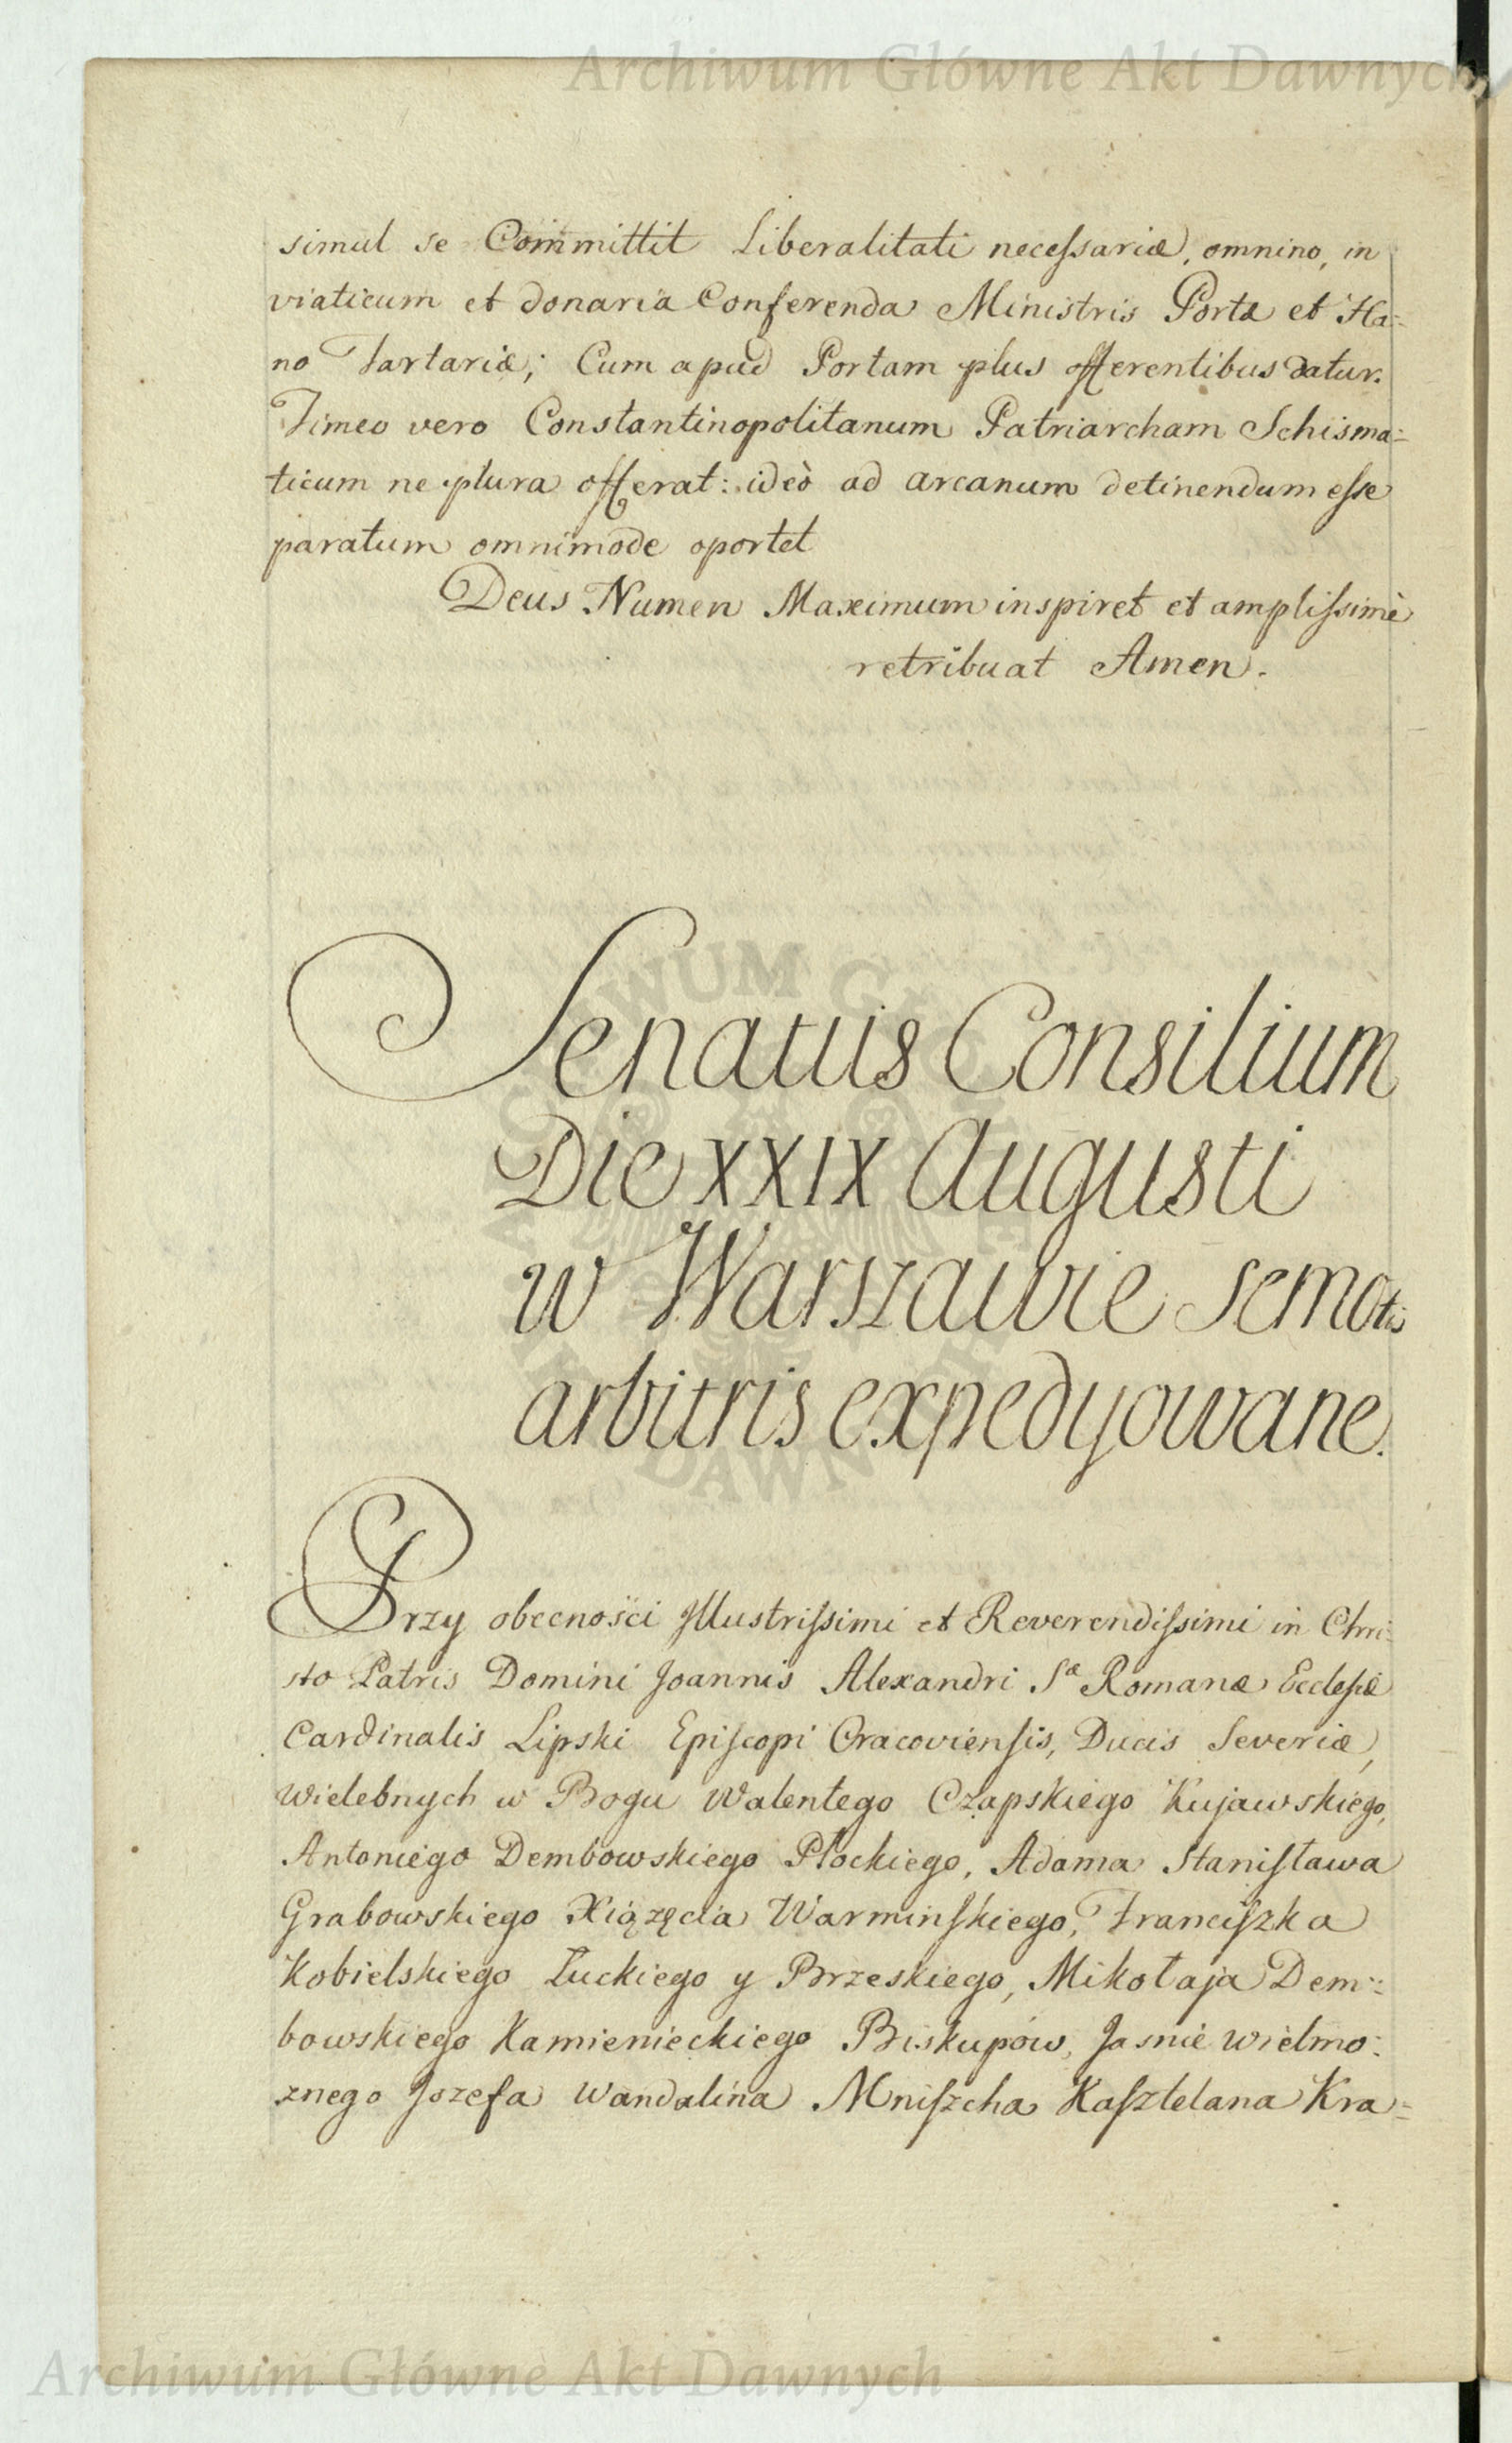 Archiwum Główne Akt Dawnych
simul se Committit Liberalitati necessariæ, omnino, in
viaticum et donaria Conferenda Ministris Portæ et Ha=
no Tartariæ; Cum apud Portam plus offerentibus datur.
Timeo vero Constantinopolitanum Patriarcham Schisma=
ticum ne plura offerat: ideò ad arcanum detinendum esse
paratum omnimode oportet
Deus Numen Maximum inspiret et amplissimè
retribuat Amen.
Senatus Consilium
Die XXIX Augusti
w Warszawie semotis
arbitris expedyowane.
Przy obecności Illustrissimi et Reverendissimi in Chri=
sto Patris Domini Joannis Alexandri Sæ Romanæ Ecclesiæ
Cardinalis Lipski Episcopi Cracoviensis, Ducis Severiæ,
Wielebnych w Bogu Walentego Czapskiego Kujawskiego,
Antoniego Dembowskiego Płockiego, Adama Stanisława
Grabowskiego Xiążęcia Warminskiego, Franciszka
Kobielskiego Łuckiego y Brzeskiego, Mikołaja Dem=
bowskiego Kamienieckiego Biskupów, Jasnie wielmo=
znego Jozefa Wandalina Mniszcha Kasztelana Kra=
Archiwum Główne Akt Dawnych